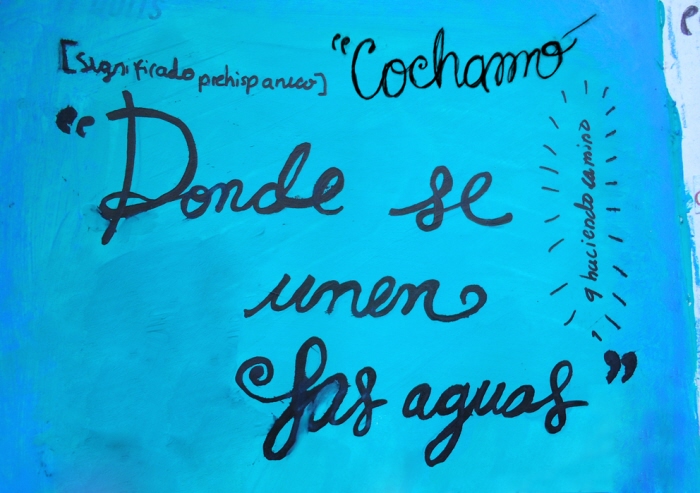 "Cochamó
[significado prehispanico]
"Donde se
unen
las aguas"
haciendo camino